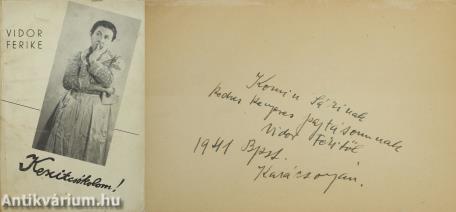 VIDOR
FERIKE
Kezitcsókolom!
Komin Sárinak
kedves kenyeres pajtásomnak
Vidor Feritől
1941 Bpst.
Karácsonyán.
Antikvárium.hu